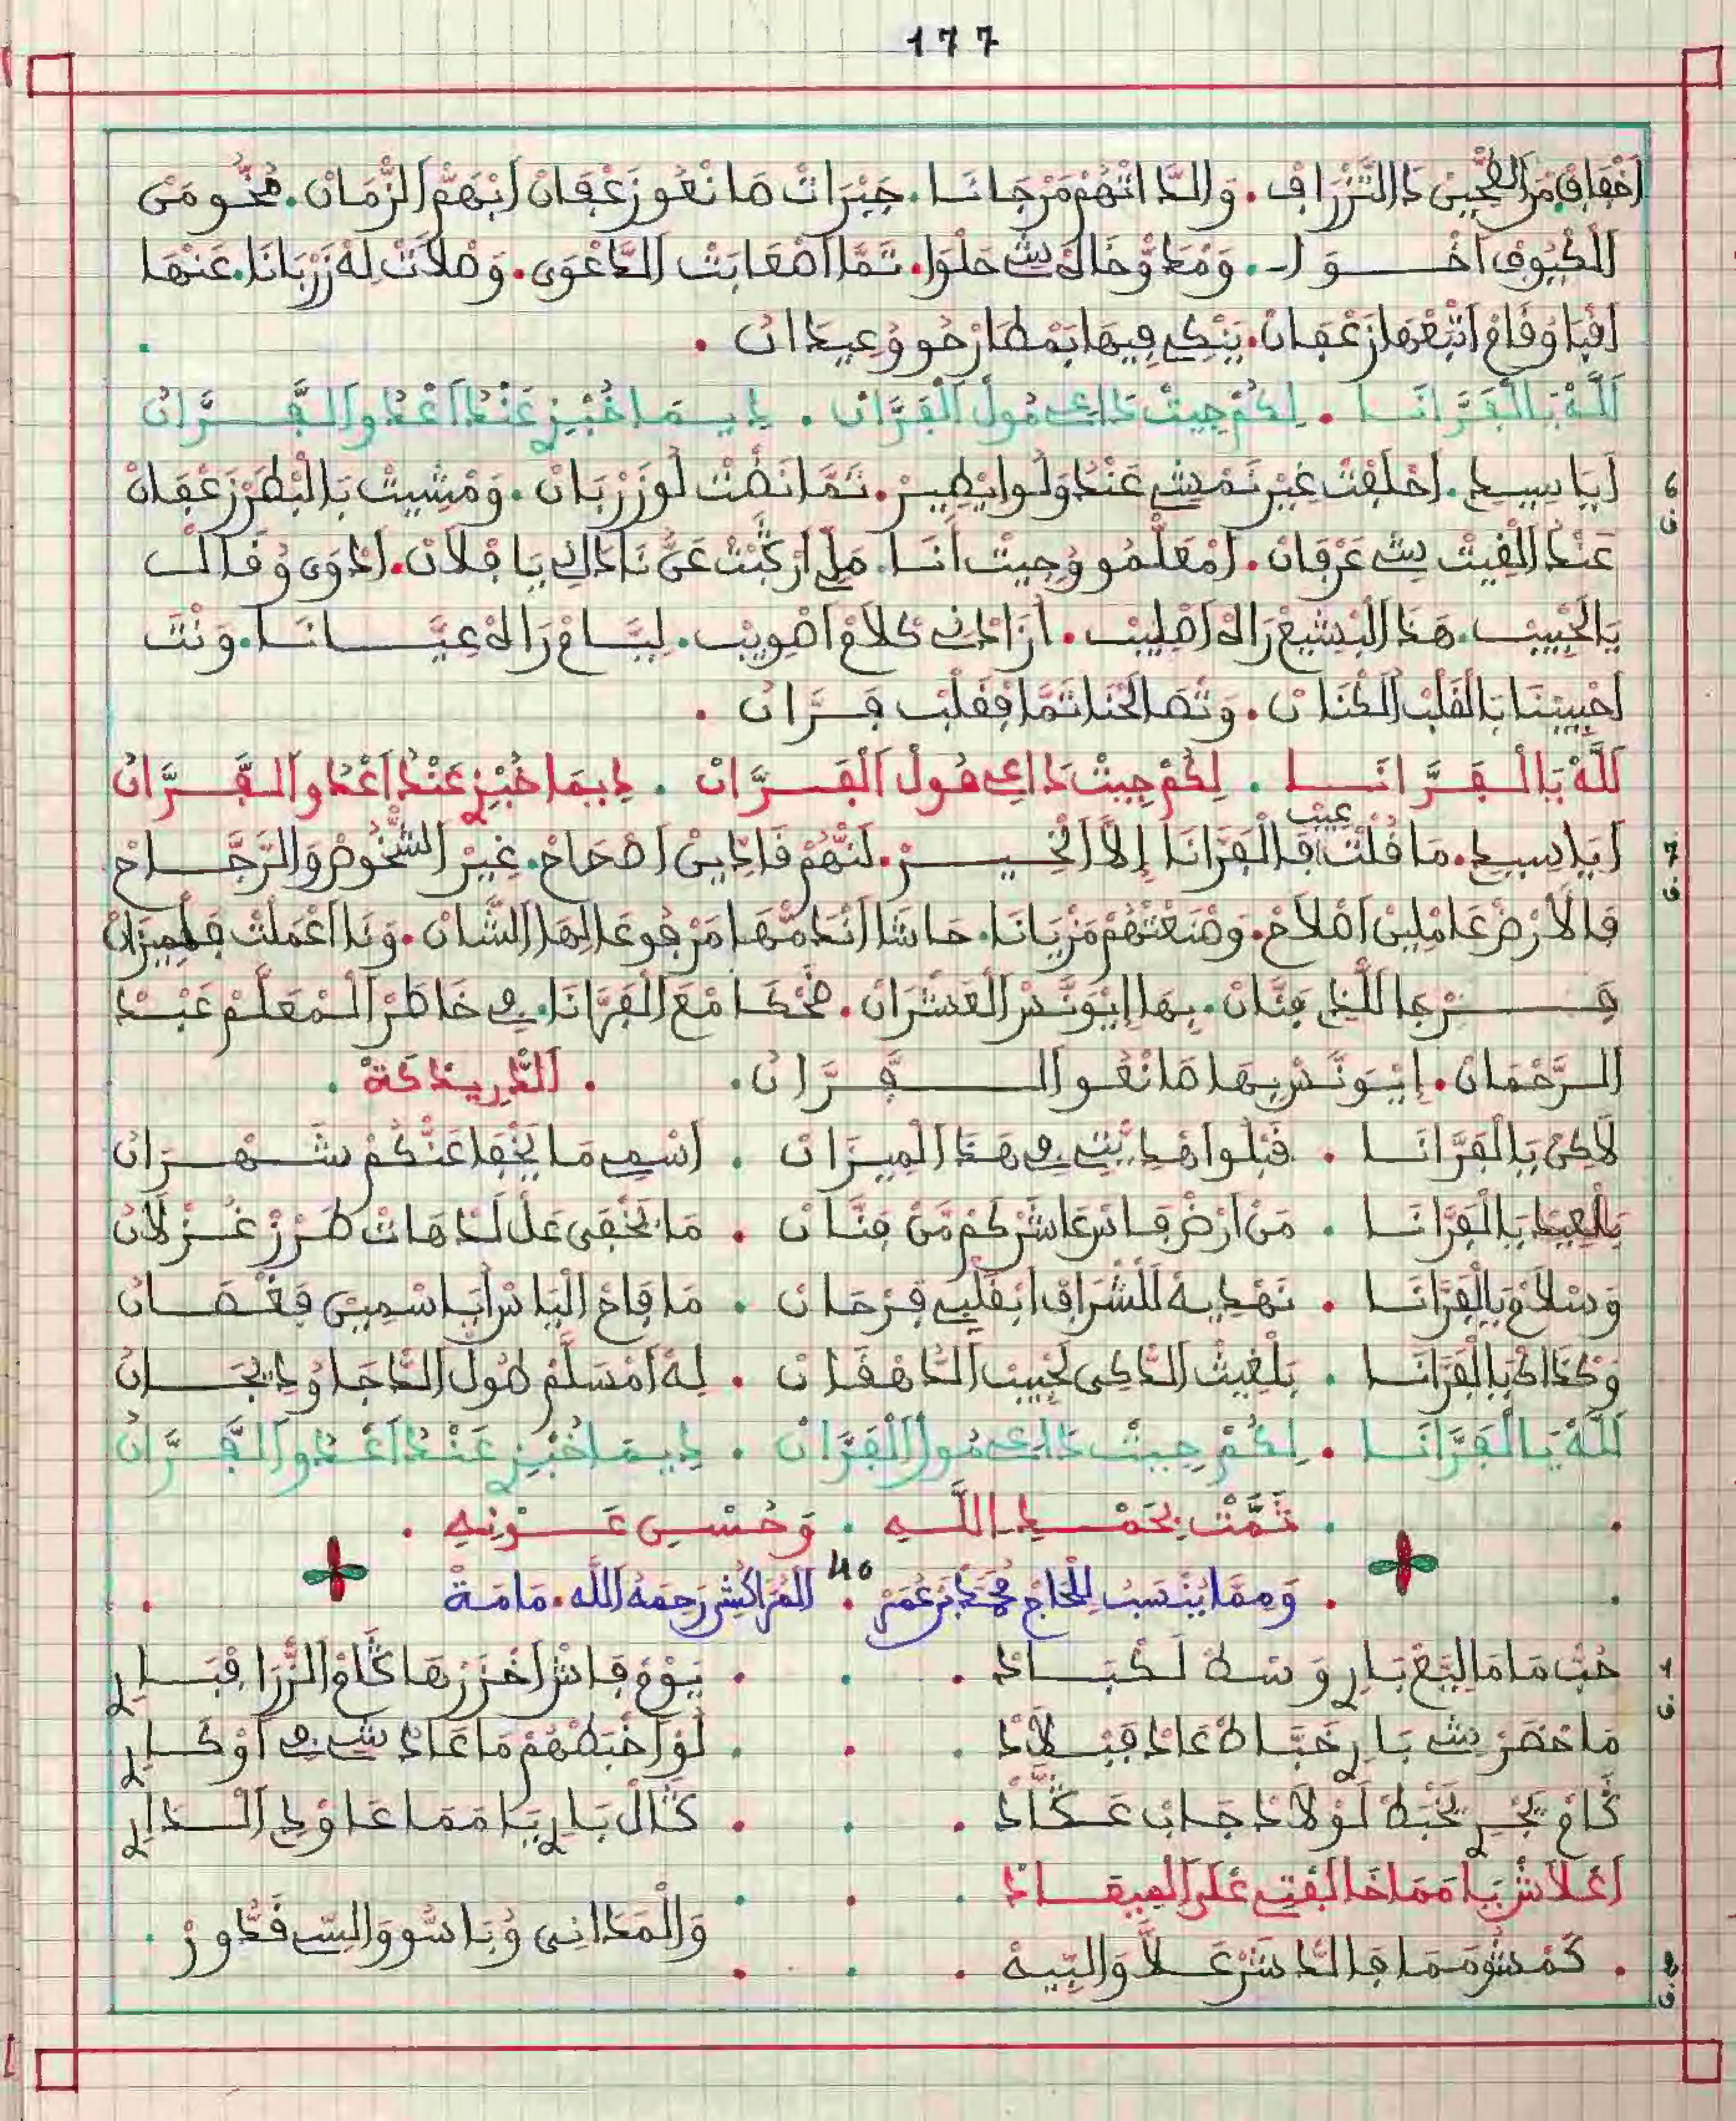 177
اَخْفَافْ مَنْ الطّْحِينْ دَ التَّزْرَافْ. وَالدَّاتْهُمْ مَرْجَانَا. جَبْرَاتْ مَا نْعُو زَعْفَانْ اَبْهَمّْ الزّْمَانْ.
اَلْكْيُوفْ اَخْوَا. وَمْدَاوْخَالَى شِ حَلْوَا. تَمَّا اَصْعَابَتْ الدَّعْوَى. وَصْلَاتْ لِهْ زَرْبَانَا. عَنْهَا
اَقْبَا وْقَامْ اَتْبَعْهَا زَعْفَانْ. يَبْكِي فِيهَا بَمْطَارْحُو وُعِيدَانْ.
اَللَّهْ يَا الْفَرَّانَا. لِكُمْ جِيتْ دَاعِي مُولْ الْفَرَّانْ. دِيمَا خُبْزِ عَنْدْ اَعْدُو الْفَرَّانْ
6 ق
اَيَا سِيدِي. اَحْلَفْتْ غِيرْ نَمْشِي عَنْدُ وَلُو ايْطِيرْ. تَمَّا نَضْتْ لُو زَرْبَانْ. وَمْشِيتْ بَالْبْطَرْ زَعْفَانْ
عَنْدُ الْفِيتْ شِ عَرْفَانْ. اَمْعَلْمُو وُجِيتْ اَنَا. مَلِّ اَرْكَبْتْ عَنّْ نَادَاكِ يَا فْلَانْ. اَدْوَى وْقَالْ
يَالْحْبِيبْ. هَذَا الْبْشِيعْ رَاهْ اَصْلِيبْ. اَرَادْنِ كْلَامْ اَصْوِيبْ. لِيَّامْ رَاهْ عِيَّانَا. وَنْتَ
اَحْبِيبْنَا بَالْقَلْبْ الْكْنَانْ. وَتْصَالَحْنَا تَمَّا فْقَلْبْ فَرَّانْ.
اَللَّهْ يَا الْفَرَّانَا. لِكُمْ جِيتْ دَاعِي مُولْ الْفَرَّانْ. دِيمَا خُبْزِ عَنْدْ اَعْدُو الْفَرَّانْ
7 ق
اَيَا سِيدِي. مَا قُلْتْ عِيبْ فَالْفَرَّانَا إِلَّا الْخِيرْ. لَنّْهُمْ قَادِينْ اَصْحَاحْ. غِيرْ الشّْخُوصْ وَالرَّجَّاحْ
فَالَارْضْ عَامْلِينْ اَصْلَاحْ. وَصْنَعْتْهُمْ مَزْيَانَا. حَاشَا اَنْدَمّْهَا مَرْجُوعَالِهَا الشَّانْ. وَنَا اَعْمَلْتْ فَلْمِيزَانْ
فَرْجَا اللَّذِ فَنَّانْ. بِهَا إِيْوَنَّسْ الْعَشْرَانْ. ضْحْكَا مْعَ الْفَرَّانَا. فِي خَاطَرْ الْمْعَلَّمْ عَبْدْ
الرَّحْمَانْ. إِيْوَنَّسْ بِهَا صَانْعُو الْفَرَّانْ. اَلدَّرِيدْكَةْ.
لَاكِنْ يَا الْفَرَّانَا. قَبْلُوا هْدِيّْتِي فِي هَذَا الْمِيزَانْ. اَسْمِي مَا يَخْفَا عَنْكُمْ شَهْرَانْ
بَالْعِيدْ يَا الْفَرَّانَا. مَنْ اَرْضْ فَاسْ عَاشَرْكُمْ مَنْ فَنَّانْ. مَا يَخْفَى عَلْ لَدْهَاتْ طَرْزْ غُزْلَانْ
وَسْلَامْ يَا الْفَرَّانَا. نَهْدِيهْ لَلشّْرَافْ اَبْقَلْبِي فَرْحَانْ. مَا فَاحْ الْيَاسْ اَيَاسْمِينْ فَغْصَانْ
وَكْدَاكْ يَا الْفَرَّانَا. بَلْغِيتْ الدَّاكِي لَحْبِيبْ الدَّهْقَانْ. لِهْ اَمْسَلَّمْ طُولْ الدَّجَا وْدِيجَانْ
اَللَّهْ يَا الْفَرَّانَا. لِكُمْ جِيتْ دَاعِي مُولْ الْفَرَّانْ. دِيمَا خُبْزِ عَنْدْ اَعْدُو الْفَرَّانْ
تَمَّتْ بِحَمْدِ اللَّهِ. وَحُسْنِ عَوْنِهِ.
وَمِمَّا يُنْسَبُ لِلْحَاجِّ مُحَمَّدْ بْنِ عُمَرْ 40 الْمُرَّاكُشِي رَحِمَهُ اللَّه. مَامَةْ
1 ق
حُبّْ مَامَا الْيَعْ بَارِ وَسْطْ لَكْبَادْ. يَوْمْ فَاشْ اَخْزَرْهَا كَّامْ الزّْرَا قْبَارِ
مَا حْضَرْ شِ بَارِ خَبَّاطْ عَادْ فَبْلَادْ. لُو اَخْبَطْهُمْ مَا عَادْ شِي فِي اَوْكَارِ
كَّامْ يَجْرِ يَخْبَطْ لَوْلَادْ جَابْ عَكَّادْ. كَالْ بَارِ يَا مَمَّا عَاوْدِ الْدَارِ
اَعْلَاشْ يَا مَمَا خَالَفْتِ عْلَى الْمِيعَادْ
2 ق
كَمْشُومَمَا فَالدَّشَرْ عَلَّا وَالتِّيهْ. وَالْمَدَانِي وُبَاسُّو وَالسِّي قَدُّورْ.